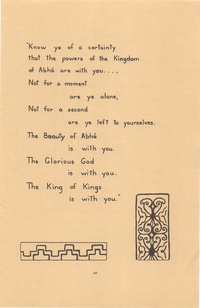 "Know ye of a certainty
that the powers of the Kingdom
of Abhá are with you....
Not for a moment
are ye alone,
Not for a second
are ye left to yourselves.
The Beauty of Abhá
is with you.
The Glorious God
is with you.
The King of Kings
is with you."